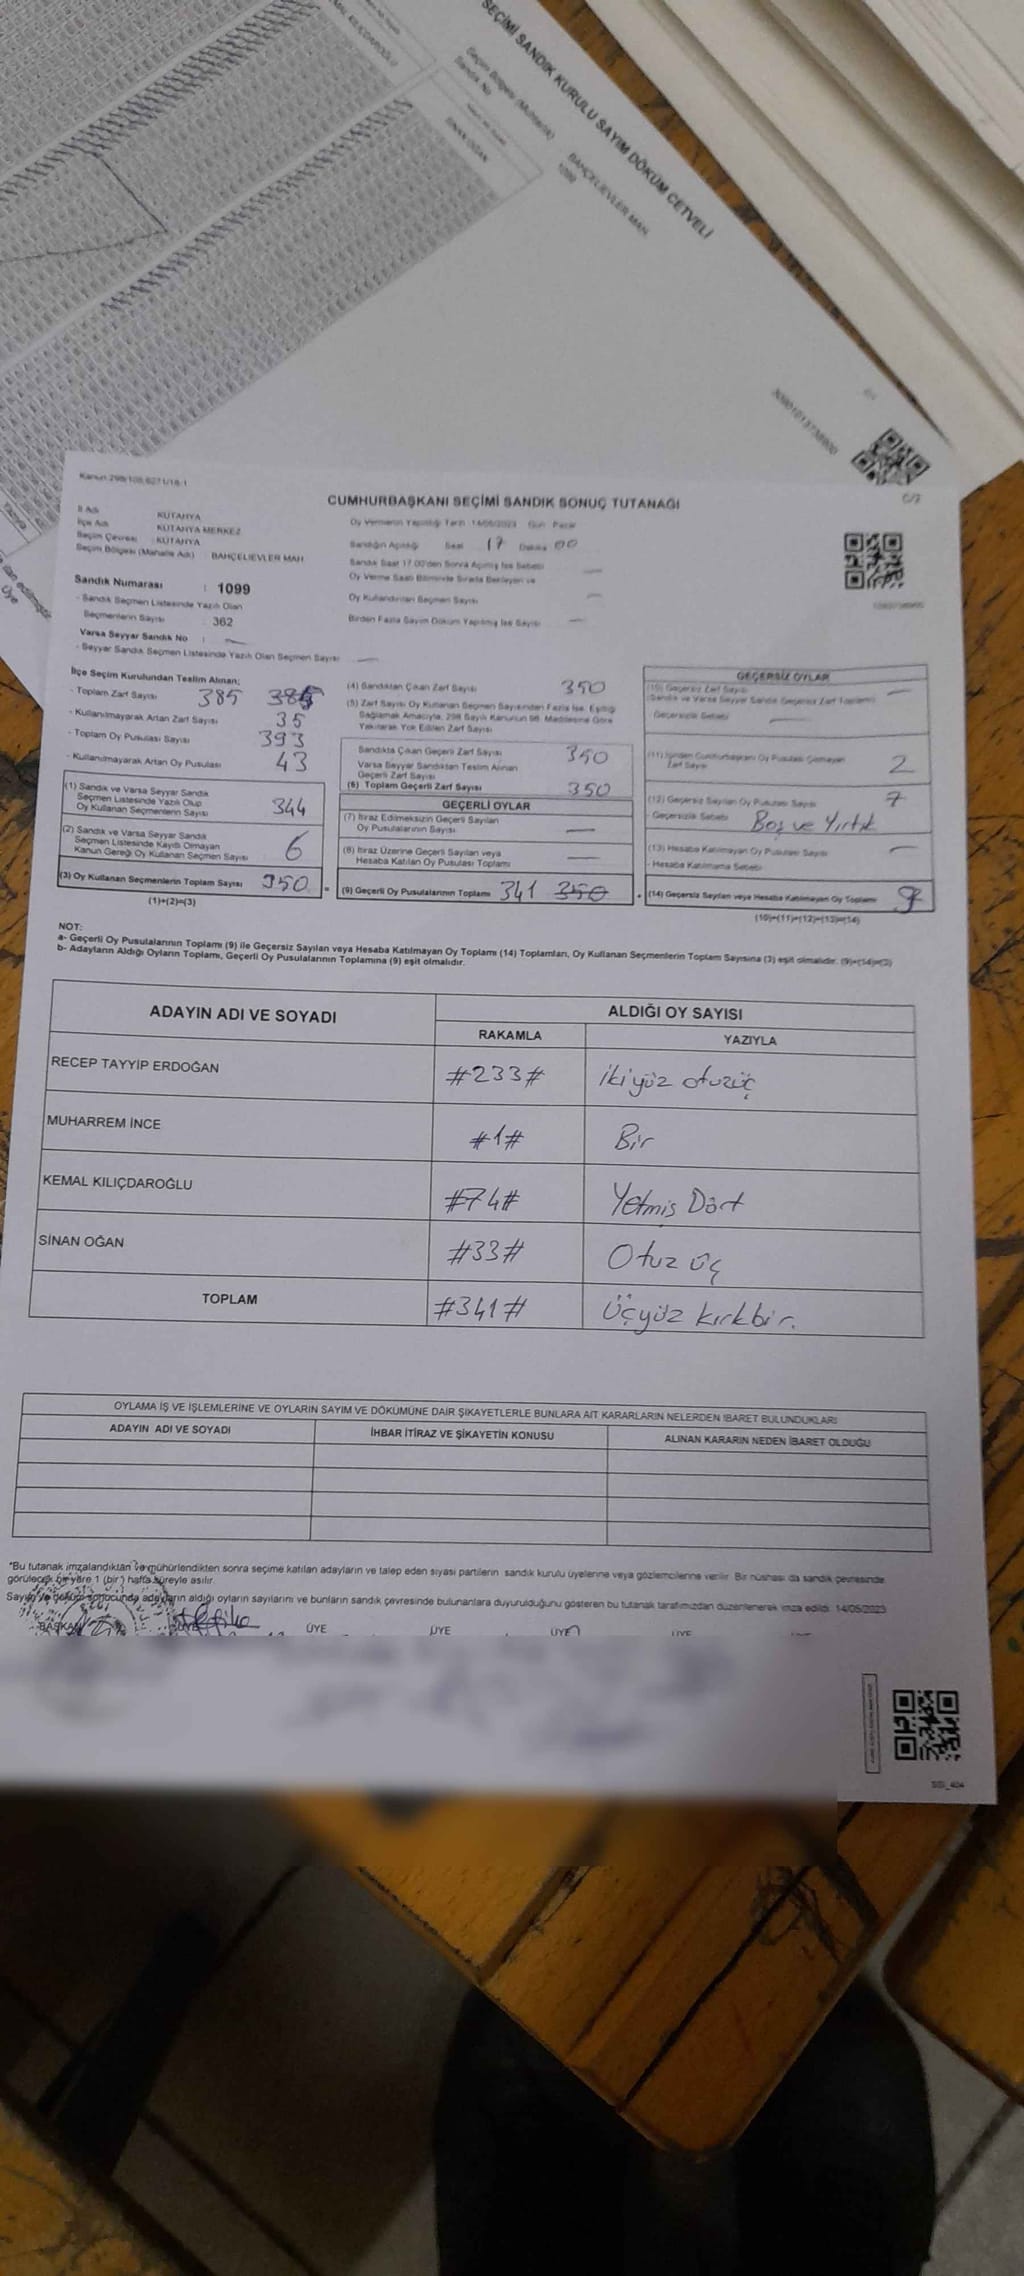 SEÇİMİ SANDIK KURULU SAYIM DÖKÜM CETVELİ
Sandık No
BAHÇELİEVLER MAH.
1099
SİNAN OĞAN
Kanun:298/105,6271/18-1
C/2
CUMHURBAŞKANI SEÇİMİ SANDIK SONUÇ TUTANAĞI
İl Adı KÜTAHYA
İlçe Adı KÜTAHYA MERKEZ
Seçim Çevresi : KÜTAHYA
Seçim Bölgesi (Mahalle Adı) : BAHÇELİEVLER MAH
Sandık Numarası : 1099
- Sandık Seçmen Listesinde Yazılı Olan
Seçmenlerin Sayısı : 362
Varsa Seyyar Sandık No : —
- Seyyar Sandık Seçmen Listesinde Yazılı Olan Seçmen Sayısı —
Oy Vermenin Yapıldığı Tarih 14/05/2023 Gün Pazar
Sandığın Açıldığı Saat 17 Dakika 00
Sandık Saat 17.00'den Sonra Açılmış İse Sebebi —
Oy Verme Saati Bitiminde Sırada Bekleyen ve
Oy Kullandırılan Seçmen Sayısı —
Birden Fazla Sayım Döküm Yapılmış İse Sayısı —
İlçe Seçim Kurulundan Teslim Alınan;
- Toplam Zarf Sayısı 385 385
- Kullanılmayarak Artan Zarf Sayısı 35
- Toplam Oy Pusulası Sayısı 393
- Kullanılmayarak Artan Oy Pusulası 43
(1) Sandık ve Varsa Seyyar Sandık
Seçmen Listesinde Yazılı Olup
Oy Kullanan Seçmenlerin Sayısı 344
(2) Sandık ve Varsa Seyyar Sandık
Seçmen Listesinde Kayıtlı Olmayan
Kanun Gereği Oy Kullanan Seçmen Sayısı 6
(3) Oy Kullanan Seçmenlerin Toplam Sayısı 350
(1)+(2)=(3)
(4) Sandıktan Çıkan Zarf Sayısı 350
(5) Zarf Sayısı Oy Kullanan Seçmen Sayısından Fazla İse, Eşitliği
Sağlamak Amacıyla, 298 Sayılı Kanunun 98. Maddesine Göre
Yakılarak Yok Edilen Zarf Sayısı
Sandıkta Çıkan Geçerli Zarf Sayısı 350
Varsa Seyyar Sandıktan Teslim Alınan
Geçerli Zarf Sayısı
(6) Toplam Geçerli Zarf Sayısı 350
GEÇERLİ OYLAR
(7) İtiraz Edilmeksizin Geçerli Sayılan
Oy Pusulalarının Sayısı —
(8) İtiraz Üzerine Geçerli Sayılan veya
Hesaba Katılan Oy Pusulası Toplamı —
(9) Geçerli Oy Pusulalarının Toplamı 341 350
GEÇERSİZ OYLAR
(10) Geçersiz Zarf Sayısı —
(Sandık ve Varsa Seyyar Sandık Geçersiz Zarf Toplamı)
- Geçersizlik Sebebi —
(11) İçinden Cumhurbaşkanı Oy Pusulası Çıkmayan
Zarf Sayısı 2
(12) Geçersiz Sayılan Oy Pusulası Sayısı 7
- Geçersizlik Sebebi Boş ve Yırtık
(13) Hesaba Katılmayan Oy Pusulası Sayısı —
- Hesaba Katılmama Sebebi
(14) Geçersiz Sayılan veya Hesaba Katılmayan Oy Toplamı 9
(10)+(11)+(12)+(13)=(14)
NOT:
a- Geçerli Oy Pusulalarının Toplamı (9) ile Geçersiz Sayılan veya Hesaba Katılmayan Oy Toplamı (14) Toplamları, Oy Kullanan Seçmenlerin Toplam Sayısına (3) eşit olmalıdır. (9)+(14)=(3)
b- Adayların Aldığı Oyların Toplamı, Geçerli Oy Pusulalarının Toplamına (9) eşit olmalıdır.
ADAYIN ADI VE SOYADI ALDIĞI OY SAYISI
RAKAMLA YAZIYLA
RECEP TAYYİP ERDOĞAN #233# ikiyüz otuzüç
MUHARREM İNCE #1# Bir
KEMAL KILIÇDAROĞLU #74# Yetmiş Dört
SİNAN OĞAN #33# Otuz üç
TOPLAM #341# Üçyüz kırkbir.
OYLAMA İŞ VE İŞLEMLERİNE VE OYLARIN SAYIM VE DÖKÜMÜNE DAİR ŞİKAYETLERLE BUNLARA AİT KARARLARIN NELERDEN İBARET BULUNDUKLARI
ADAYIN ADI VE SOYADI İHBAR İTİRAZ VE ŞİKAYETİN KONUSU ALINAN KARARIN NEDEN İBARET OLDUĞU
*Bu tutanak imzalandıktan ve mühürlendikten sonra seçime katılan adayların ve talep eden siyasi partilerin sandık kurulu üyelerine veya gözlemcilerine verilir. Bir nüshası da sandık çevresinde
görülecek bir yere 1 (bir) hafta süreyle asılır.
Sayım ve döküm sonucunda adayların aldığı oyların sayılarını ve bunların sandık çevresinde bulunanlara duyurulduğunu gösteren bu tutanak tarafımızdan düzenlenerek imza edildi. 14/05/2023
BAŞKAN ÜYE ÜYE ÜYE ÜYE ÜYE